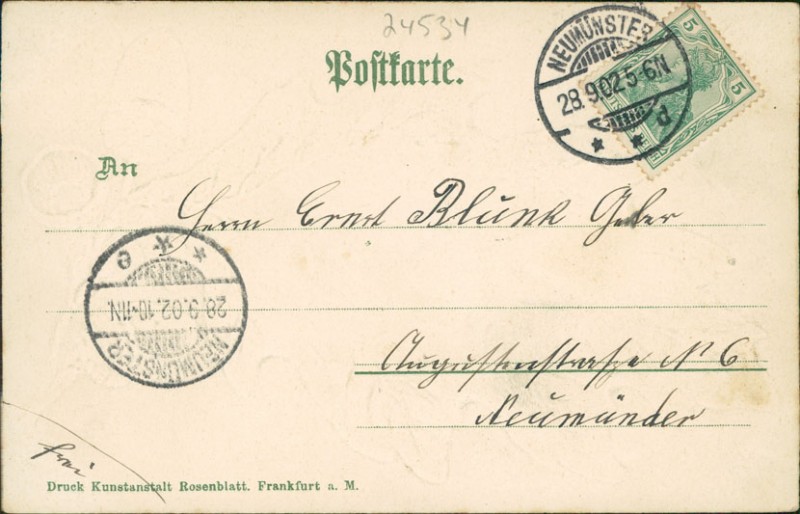 24534
Postkarte.
NEUMÜNSTER
28.9.02.5-6N.
5
5
An
Herrn Ernst Blunk
28.9.02.10-11N.
NEUMÜNSTER
Augustenstrasse N 6
Neumünster
frei
Druck Kunstanstalt Rosenblatt. Frankfurt a. M.